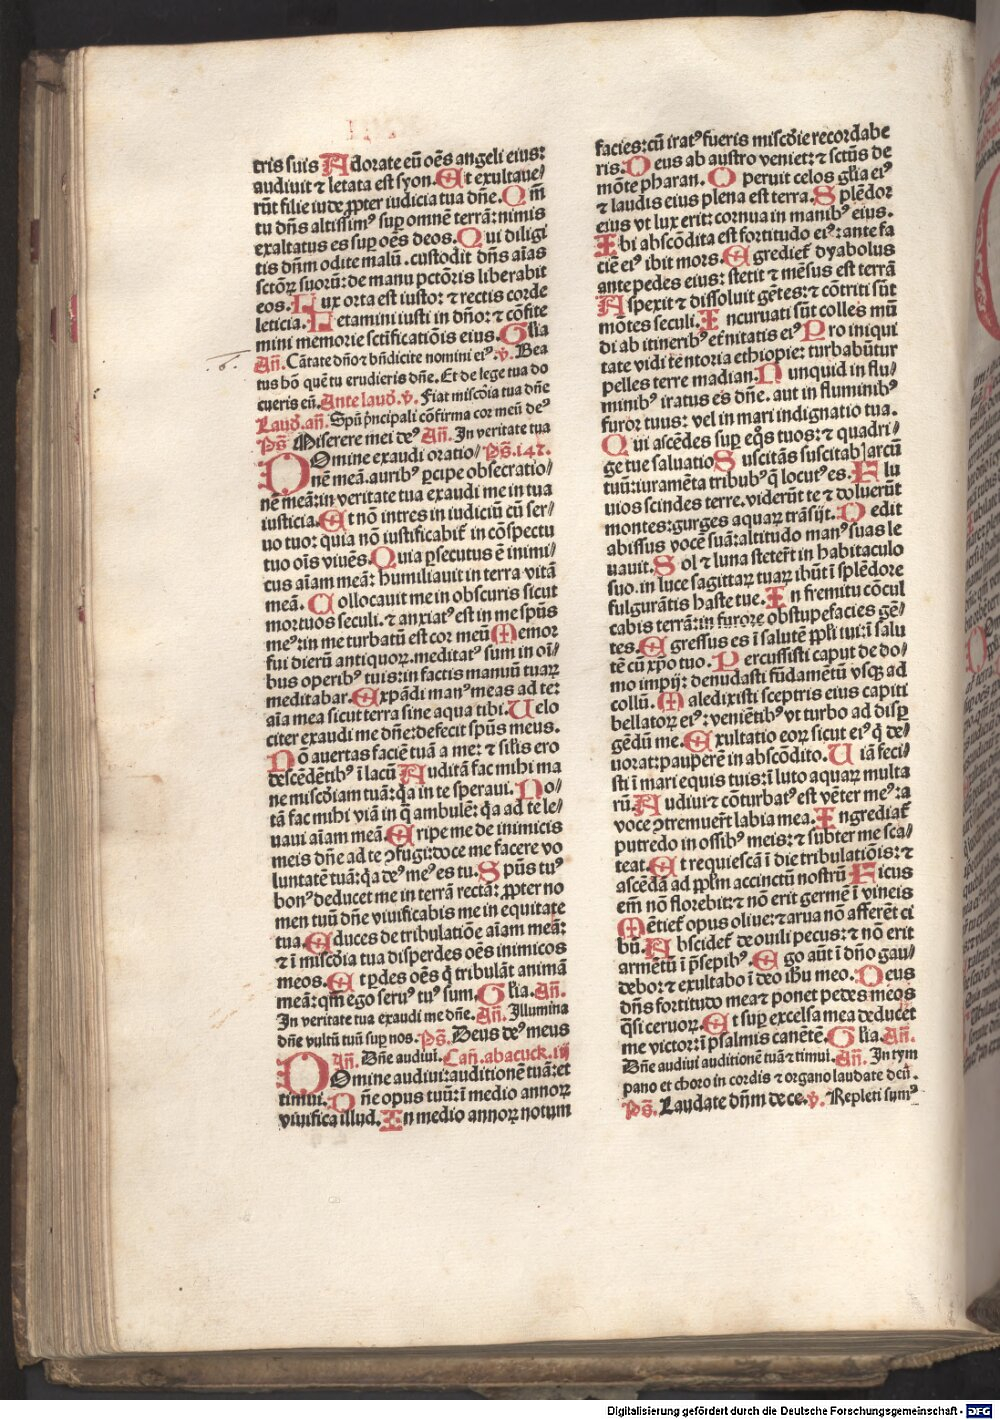 tris suis Adorate eū oēs angeli eius:
audiuit ⁊ letata est syon. Et exultaue/
rūt filie iude ꝓpter iudicia tua dn̄e. Qm̄
tu dn̄s altissimꝰ suꝑ omnē terrā: nimis
exaltatus es suꝑ oēs deos. Qui diligi
tis dn̄m odite malū. custodit dn̄s aīas
sctōꝝ suorū: de manu pctōris liberabit
eos. Lux orta est iusto: ⁊ rectis corde
leticia. Letamini iusti in dn̄o: ⁊ cōfite
mini memorie sctificatiōis eius. Gl̄ia
Añ. Cātate dn̄o ⁊ bn̄dicite nomini eiꝰ. v̄. Bea
tus hō quē tu erudieris dn̄e. Et de lege tua do
cueris eū. Ante laud. v̄. Fiat miscd̄ia tua dn̄e
Laud. añ. Spū p̄ncipali cōfirma cor meū deꝰ
Ps̄ Miserere mei deꝰ Añ. In veritate tua
Domine exaudi oratio/ Ps̄. 142.
nē meā. auribꝰ ꝑcipe obsecratio/
nē meā: in veritate tua exaudi me in tua
iusticia. Et nō intres in iudiciū cū ser/
uo tuo: quia nō iustificabit̄ in cōspectu
tuo oīs viuēs. Quia ꝑsecutus ē inimi/
cus aīam meā: humiliauit in terra vitā
meā. Collocauit me in obscuris sicut
mortuos seculi. ⁊ anxiatꝰ est in me spūs
meꝰ: in me turbatū est cor meū Memor
fui dierū antiquoꝝ. meditatꝰ sum in oī/
bus operibꝰ tuis: in factis manuū tuaꝝ
meditabar. Expādi manꝰ meas ad te:
aīa mea sicut terra sine aqua tibi. Uelo
citer exaudi me dn̄e: defecit spūs meus.
Nō auertas faciē tuā a me: ⁊ sil̄is ero
descēdētibꝰ ī lacū Auditā fac mihi ma
ne miscd̄iam tuā: q̄a in te speraui. No/
tā fac mihi viā in q̄ ambulē: q̄a ad te le/
uaui aīam meā Eripe me de inimicis
meis dn̄e ad te ↄfugi: doce me facere vo
luntatē tuā: q̄a deꝰ meꝰ es tu. Spūs tuꝰ
bonꝰ deducet me in terrā rectā: ꝓpter no
men tuū dn̄e viuificabis me in equitate
tua. Educes de tribulatiōe aīam meā:
⁊ ī miscd̄ia tua disperdes oēs inimicos
meos. Et ꝑdes oēs q̄ tribulāt animā
meā: qm̄ ego seruꝰ tuꝰ sum. Gl̄ia. Añ.
In veritate tua exaudi me dn̄e. Añ. Illumina
dn̄e vultū tuū suꝑ nos. Ps̄. Deus deꝰ meus
Añ. Dn̄e audiui. Cañ. abacuck. iij
Domine audiui: auditionē tuā: et
timui. Dn̄e opus tuū: ī medio annoꝝ
viuifica illud. In medio annoꝝ notum
facies: cū iratꝰ fueris miscd̄ie recordabe
ris. Deus ab austro veniet: ⁊ sctūs de
mōte pharan. Operuit celos gl̄ia eiꝰ
⁊ laudis eius plena est terra. Splēdor
eius vt lux erit: cornua in manibꝰ eius.
Ibi abscōdita est fortitudo eiꝰ: ante fa
ciē eiꝰ ibit mors. Egrediet̄ dyabolus
ante pedes eius: stetit ⁊ mēsus est terrā
Aspexit ⁊ dissoluit gētes: ⁊ cōtriti sūt
mōtes seculi. Incuruati sūt colles mū
di ab itineribꝰ et̄nitatis eiꝰ Pro iniqui
tate vidi tētoria ethiopie: turbabūtur
pelles terre madian. Nunquid in flu/
minibꝰ iratus es dn̄e. aut in fluminibꝰ
furor tuus: vel in mari indignatio tua.
Qui ascēdes suꝑ eq̄s tuos: ⁊ quadri/
ge tue saluatio Suscitās suscitab arcū
tuū: iuramēta tribubꝰ q̄ locutꝰ es. Flu
uios scindes terre. viderūt te ⁊ doluerūt
montes: gurges aquaꝝ trāsijt. Dedit
abissus vocē suā: altitudo manꝰ suas le
uauit. Sol ⁊ luna stetert̄ in habitaculo
suo. in luce sagittaꝝ tuaꝝ ibūt ī splēdore
fulgurātis haste tue. In fremitu cōcul
cabis terrā: in furore obstupefacies gē/
tes. Egressus es ī salutē ppl̄i tui: ī salu
tē cū xp̄o tuo. Percussisti caput de do/
mo impij: denudasti fūdamētū vsqꝫ ad
collū. Maledixisti sceptris eius capiti
bellatoꝝ eiꝰ: veniētibꝰ vt turbo ad disꝑ
gēdū me. Exultatio eoꝝ sicut eiꝰ q̄ de/
uorat: pauperē in abscōdito. Uiā feci/
sti ī mari equis tuis: ī luto aquaꝝ multa
rū. Audiui ⁊ cōturbatꝰ est vēter meꝰ: a
voce ↄtremuert̄ labia mea. Ingrediat̄
putredo in ossibꝰ meis: ⁊ subter me sca/
teat. Et requiescā ī die tribulatiōis: ⁊
ascēdā ad ppl̄m accinctū nostrū Ficus
em̄ nō florebit: ⁊ nō erit germē ī vineis
Mētiet̄ opus oliue: ⁊ arua nō afferēt ci
bū. Abscidet̄ de ouili pecus: ⁊ nō erit
armētū ī p̄sepibꝰ. Ego aūt ī dn̄o gau/
debo: ⁊ exultabo ī deo ihū meo. Deus
dn̄s fortitudo mea ⁊ ponet pedes meos
q̄si ceruoꝝ. Et suꝑ excelsa mea deducet
me victor: ī psalmis canētē. Gl̄ia. Añ.
Dn̄e audiui auditionē tuā ⁊ timui. Añ. In tym
pano et choro in cordis ⁊ organo laudate deū.
Ps̄. Laudate dn̄m de ce. v̄. Repleti sumꝰ
Digitalisierung gefördert durch die Deutsche Forschungsgemeinschaft - DFG